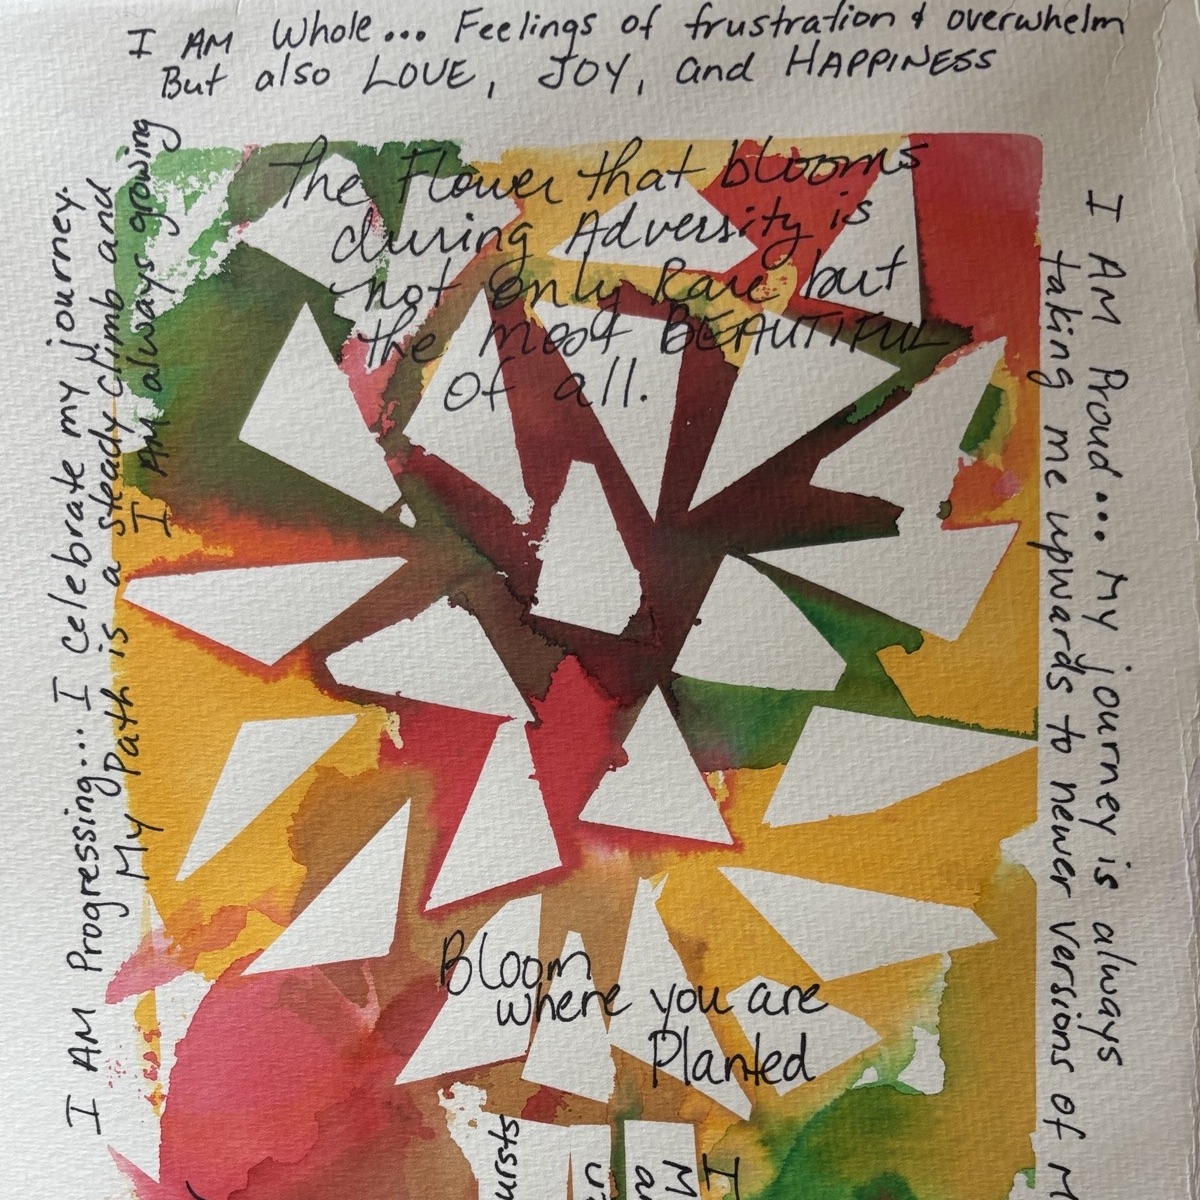 I AM Whole... Feelings of frustration & overwhelm
But also LOVE, JOY, and HAPPINESS
The Flower that blooms
during Adversity is
not only Rare but
the most BEAUTIFUL
of all.
I AM Proud... My journey is always
taking me upwards to newer versions of M
I AM Progressing... I celebrate my journey.
My Path is a steady climb and
I AM always growing
Bloom
where you are
Planted
ursts
I
M